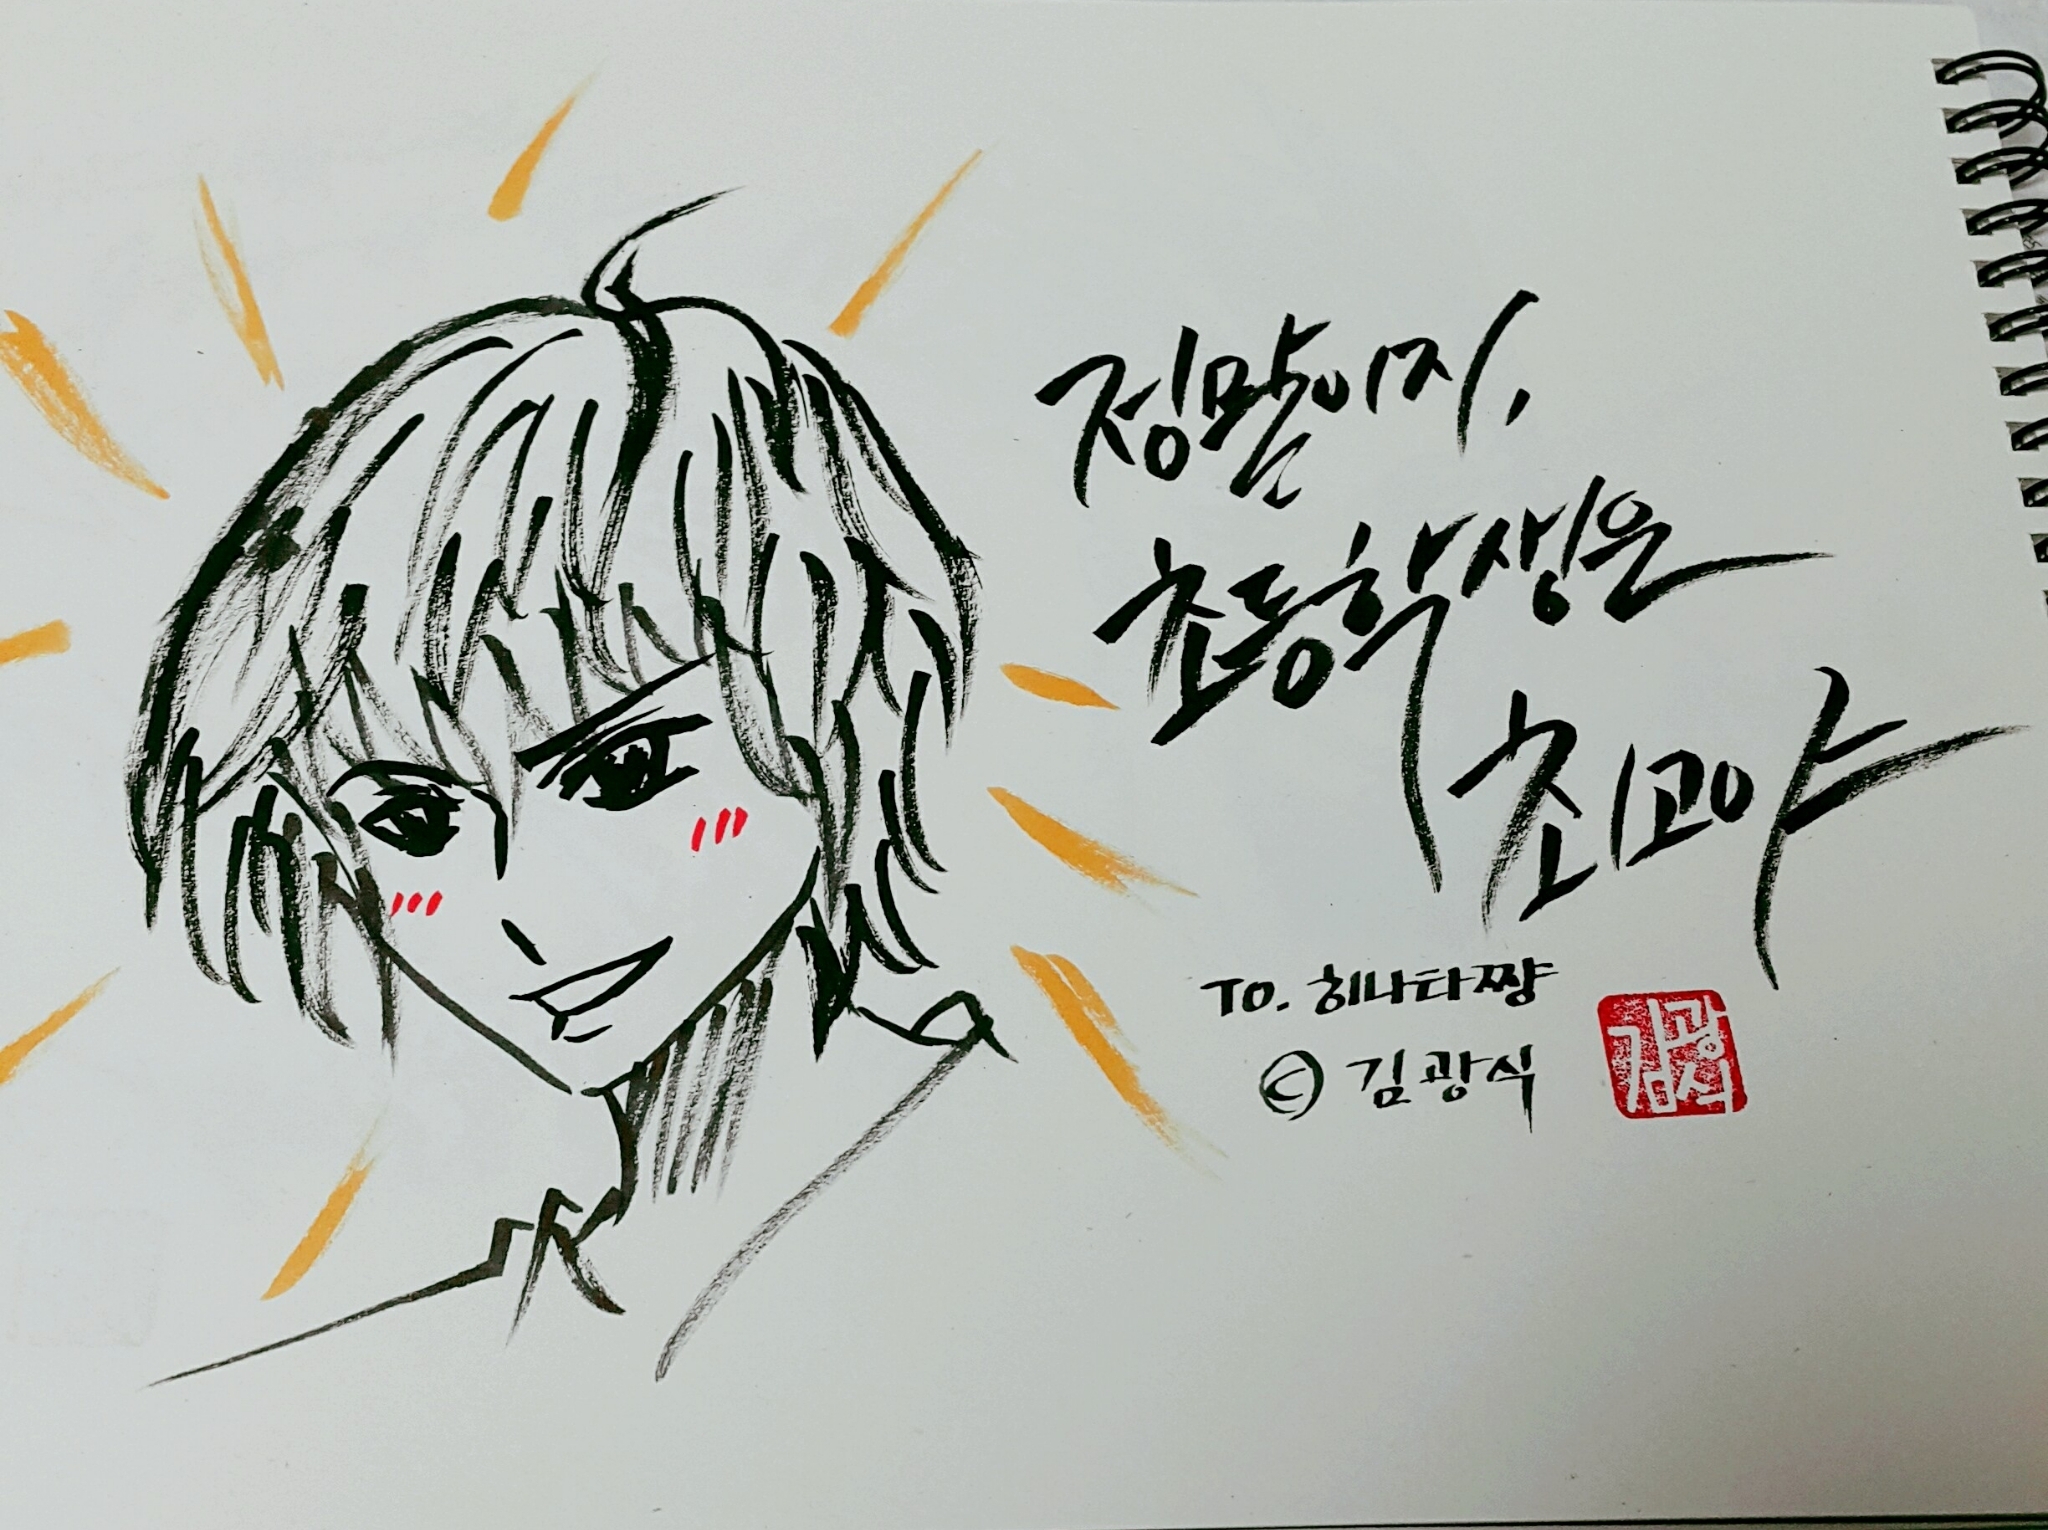 정말이지,
초등학생은
최고야
TO. 히나타쨩
ⓒ 김광식
김광식